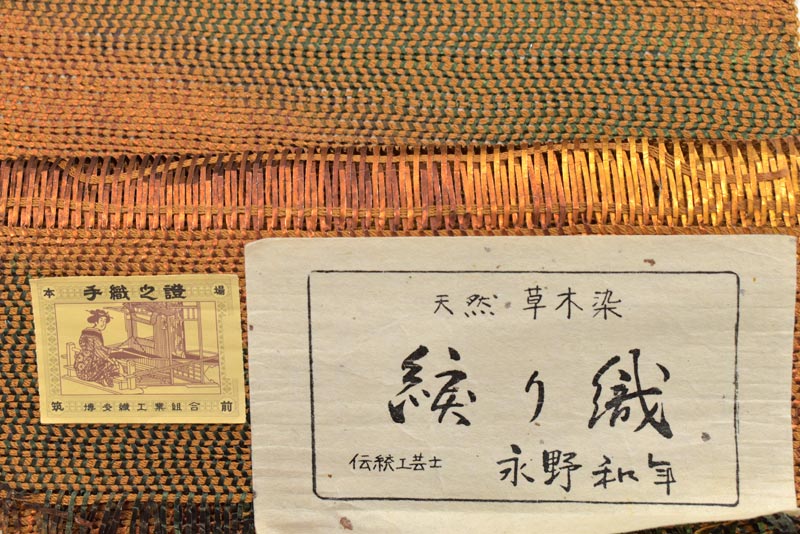 天然 草木染
綟り織
伝統工芸士 永野和年
本 手織之證 場
筑 博多織工業組合 前